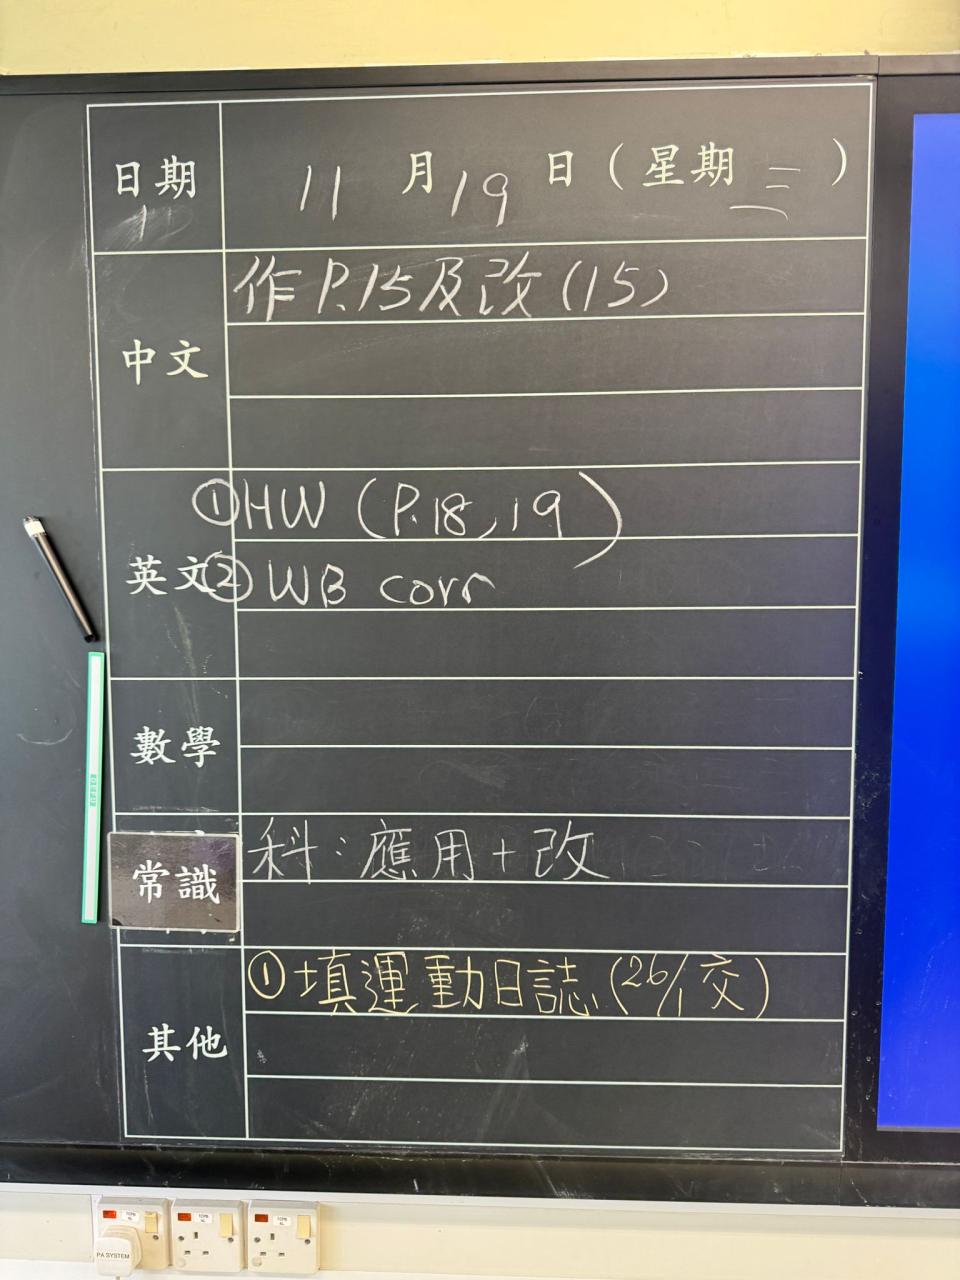 日期 11月19日(星期三)
中文 作P.15及改(15)
英文 ①HW (P.18,19)
②WB corr
數學
常識 科:應用+改
其他 ①填運動日誌(26/1交)
PA SYSTEM